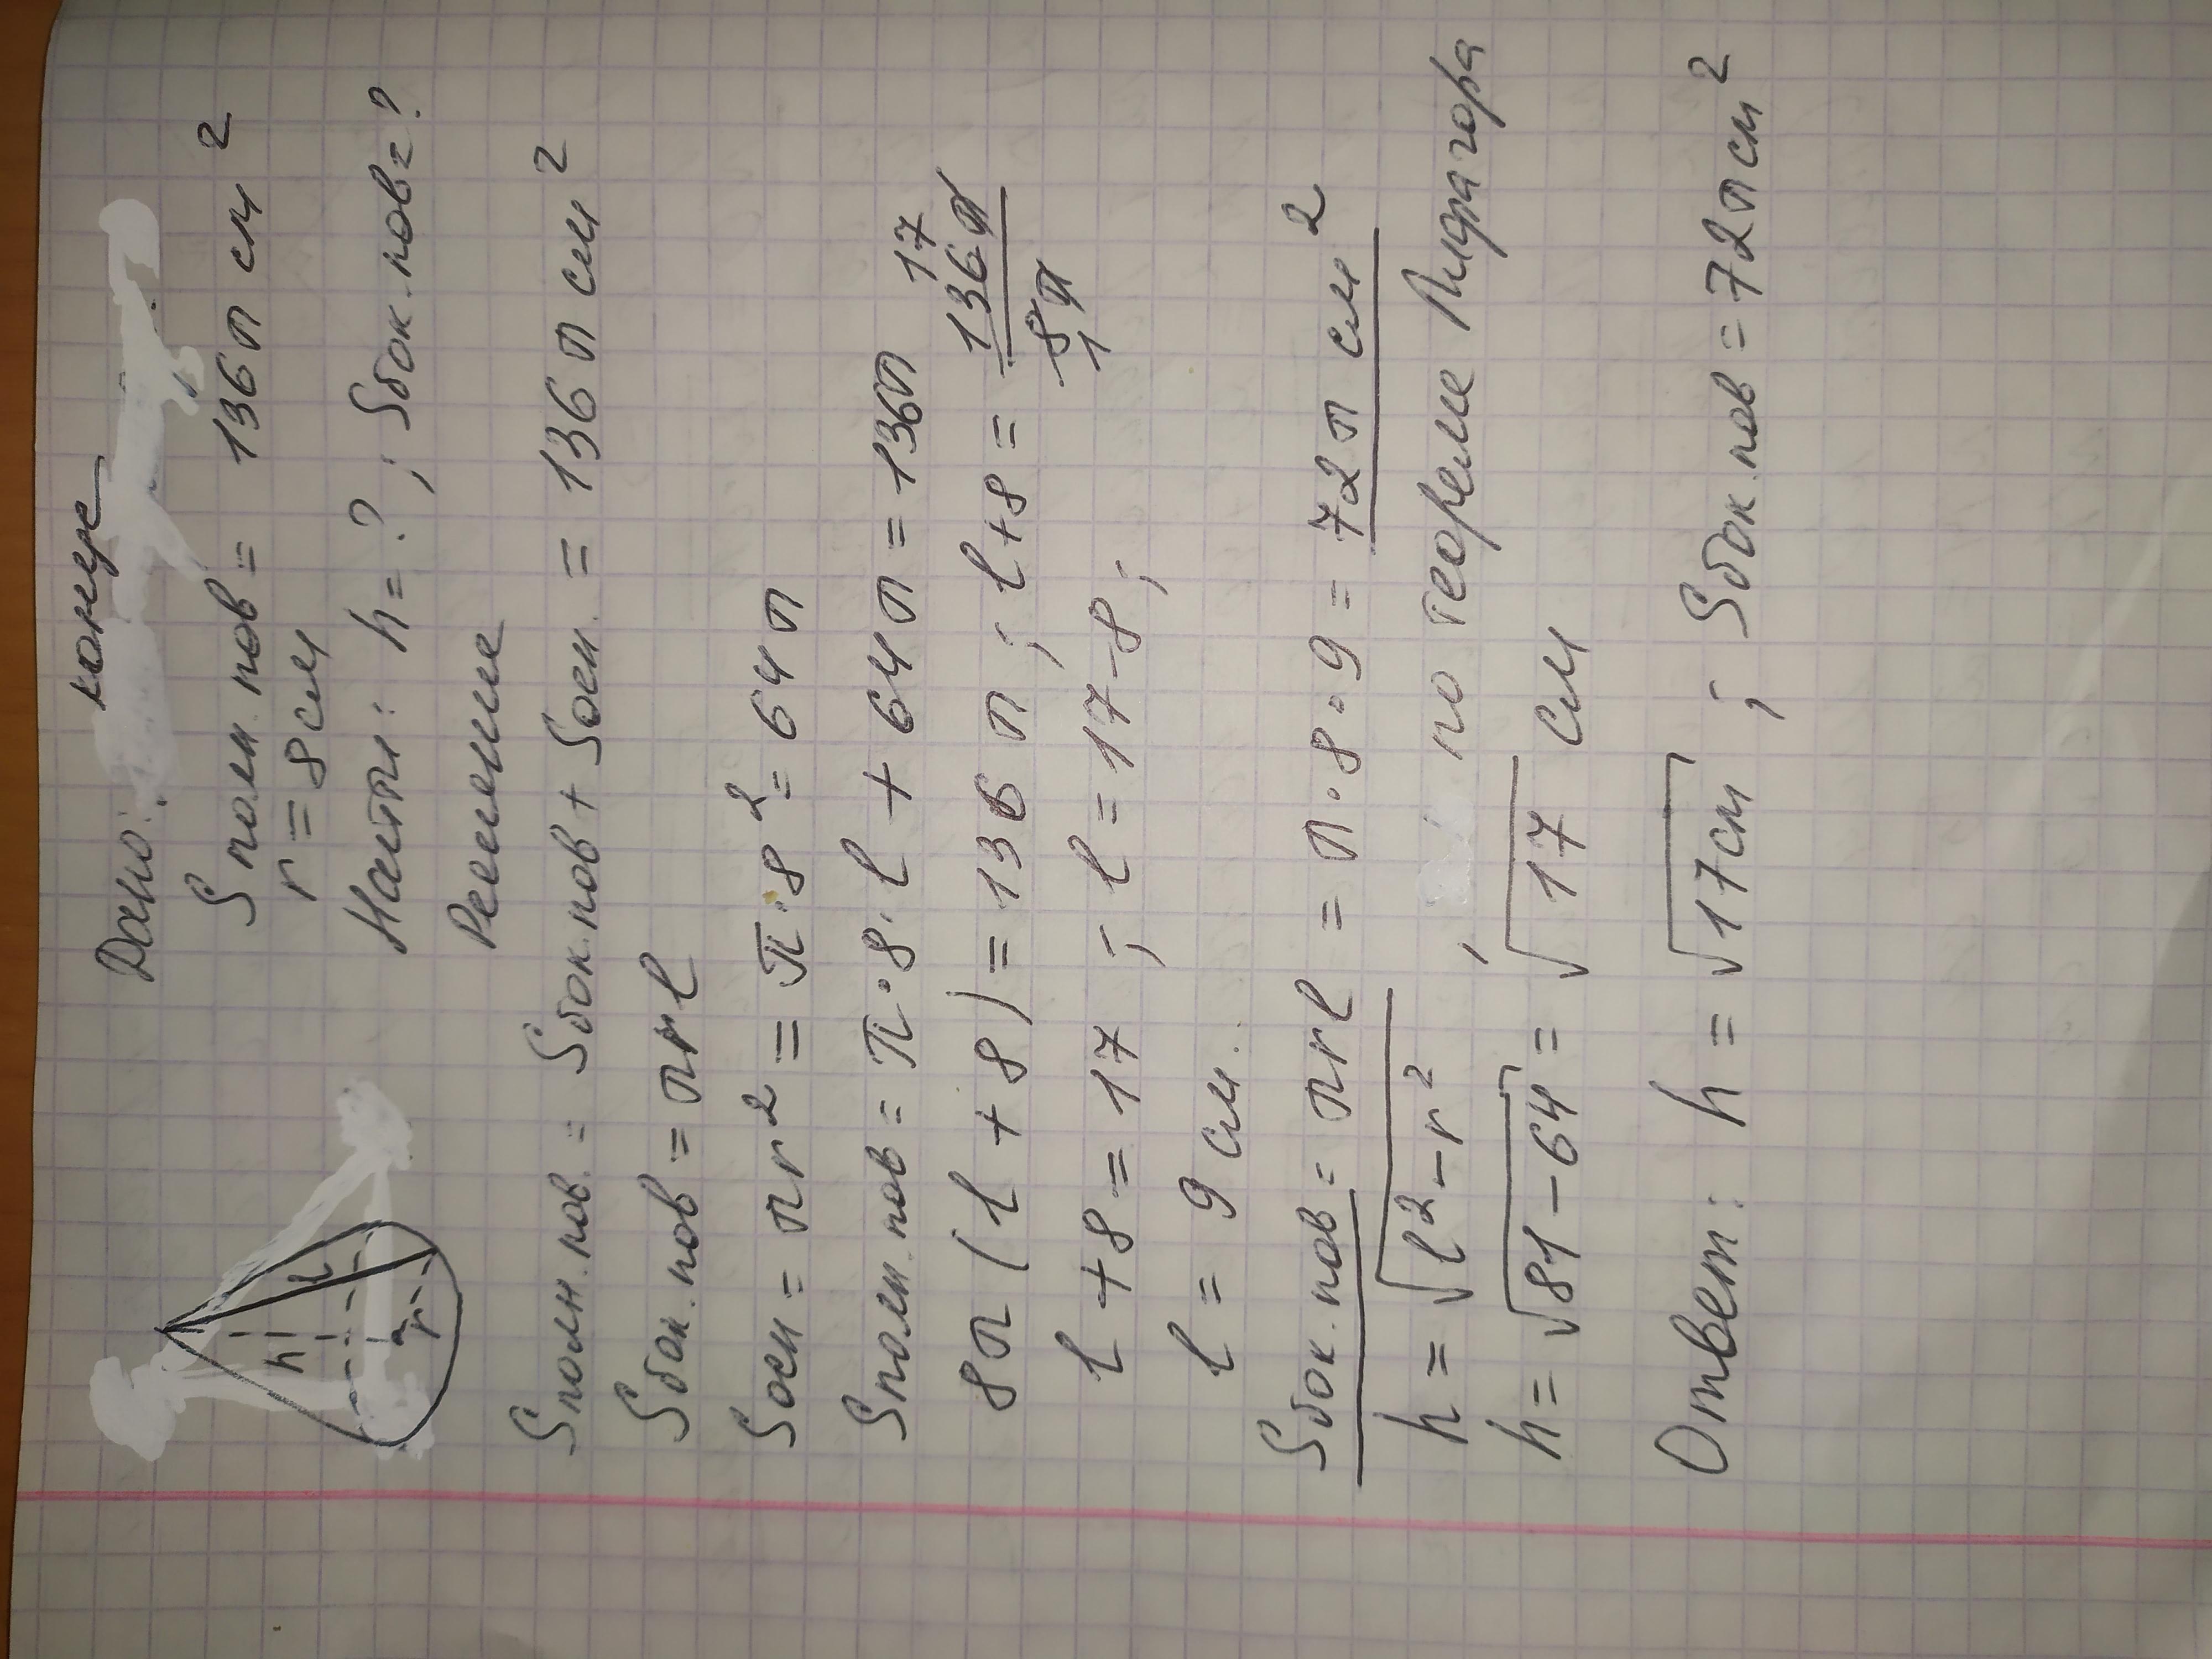 Дано: конус
Sполн.пов = 136π см²
r = 8см
Найти: h = ? ; Sбок.пов = ?
Решение
Sполн.пов. = Sбок.пов + Sосн. = 136π см²
Sбок.пов = πrl
Sосн = πr² = π·8² = 64π
Sполн.пов = π·8·l + 64π = 136π
8π(l + 8) = 136π ; l + 8 = 136π/8π 17 1
l + 8 = 17 ; l = 17 - 8 ;
l = 9 см.
Sбок.пов = πrl = π·8·9 = 72π см²
h = √l² - r² , по теореме Пифагора
h = √81 - 64 = √17 см
Ответ: h = √17см ; Sбок.пов = 72π см²
h
l
r